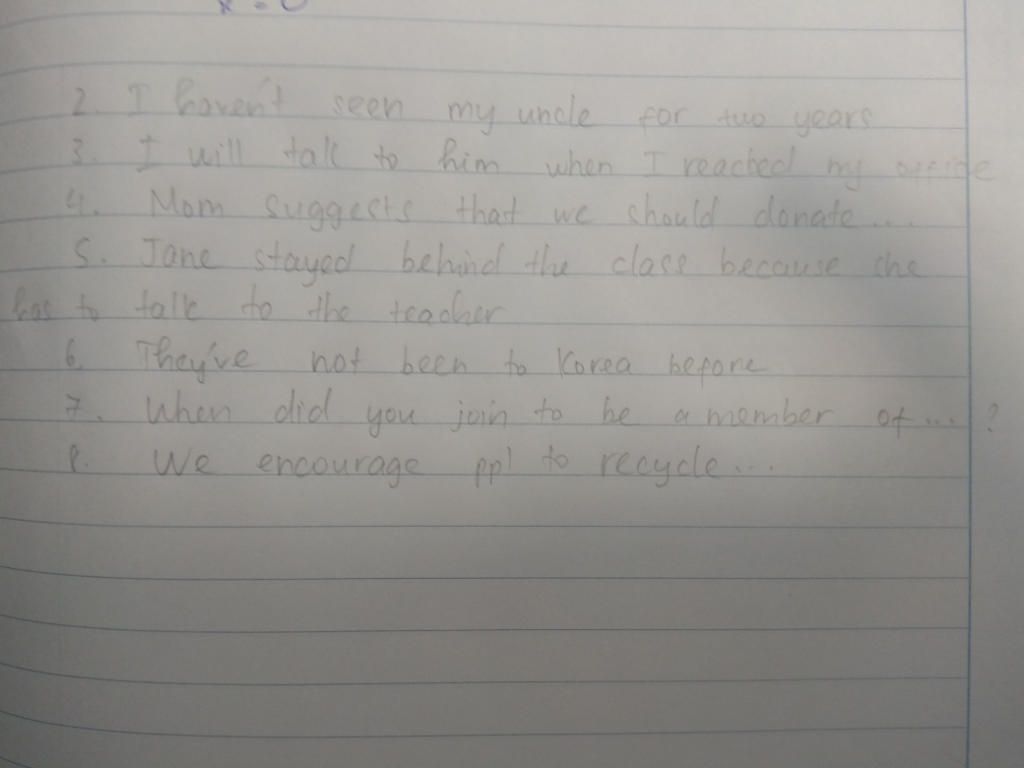 x = 0
2. I haven't seen my uncle for two years
3. I will talk to him when I reached my office
4. Mom suggests that we should donate....
5. Jane stayed behind the class because she
has to talk to the teacher
6. They've not been to Korea before
7. When did you join to be a member of....?
8. We encourage ppl to recycle...